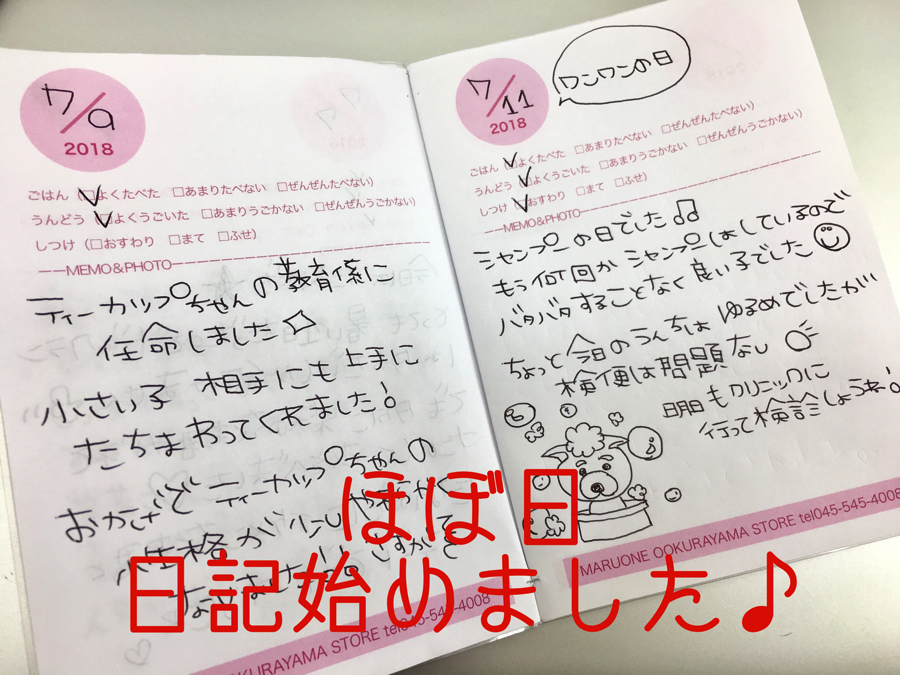 7/9
2018
ごはん (□よくたべた □あまりたべない □ぜんぜんたべない)
うんどう (□よくうごいた □あまりうごかない □ぜんぜんうごかない)
しつけ (□おすわり □まて □ふせ)
MEMO&PHOTO
ティーカップちゃんの教育係に
任命しました☆
小さい子 相手にも上手に
たちまわってくれました!
おかげで ティーカップちゃんの
性格が少し
なりました!
OOKURAYAMA STORE tel045-545-4008
7/11
2018
ワンワンの日
ごはん □よくたべた □あまりたべない □ぜんぜんたべない)
うんどう □よくうごいた □あまりうごかない □ぜんぜんうごかない)
しつけ □おすわり □まて □ふせ)
MEMO&PHOTO
シャンプーの日でした♫
もう何回か シャンプーはしているので
バタバタすることなく良い子でした☺
ちょっと今日のうんちは ゆるめでしたが
検便は問題なし
明日もクリニックに
行って検診しようね!
MARUONE OOKURAYAMA STORE tel045-545-4008
ほぼ日
日記始めました♪